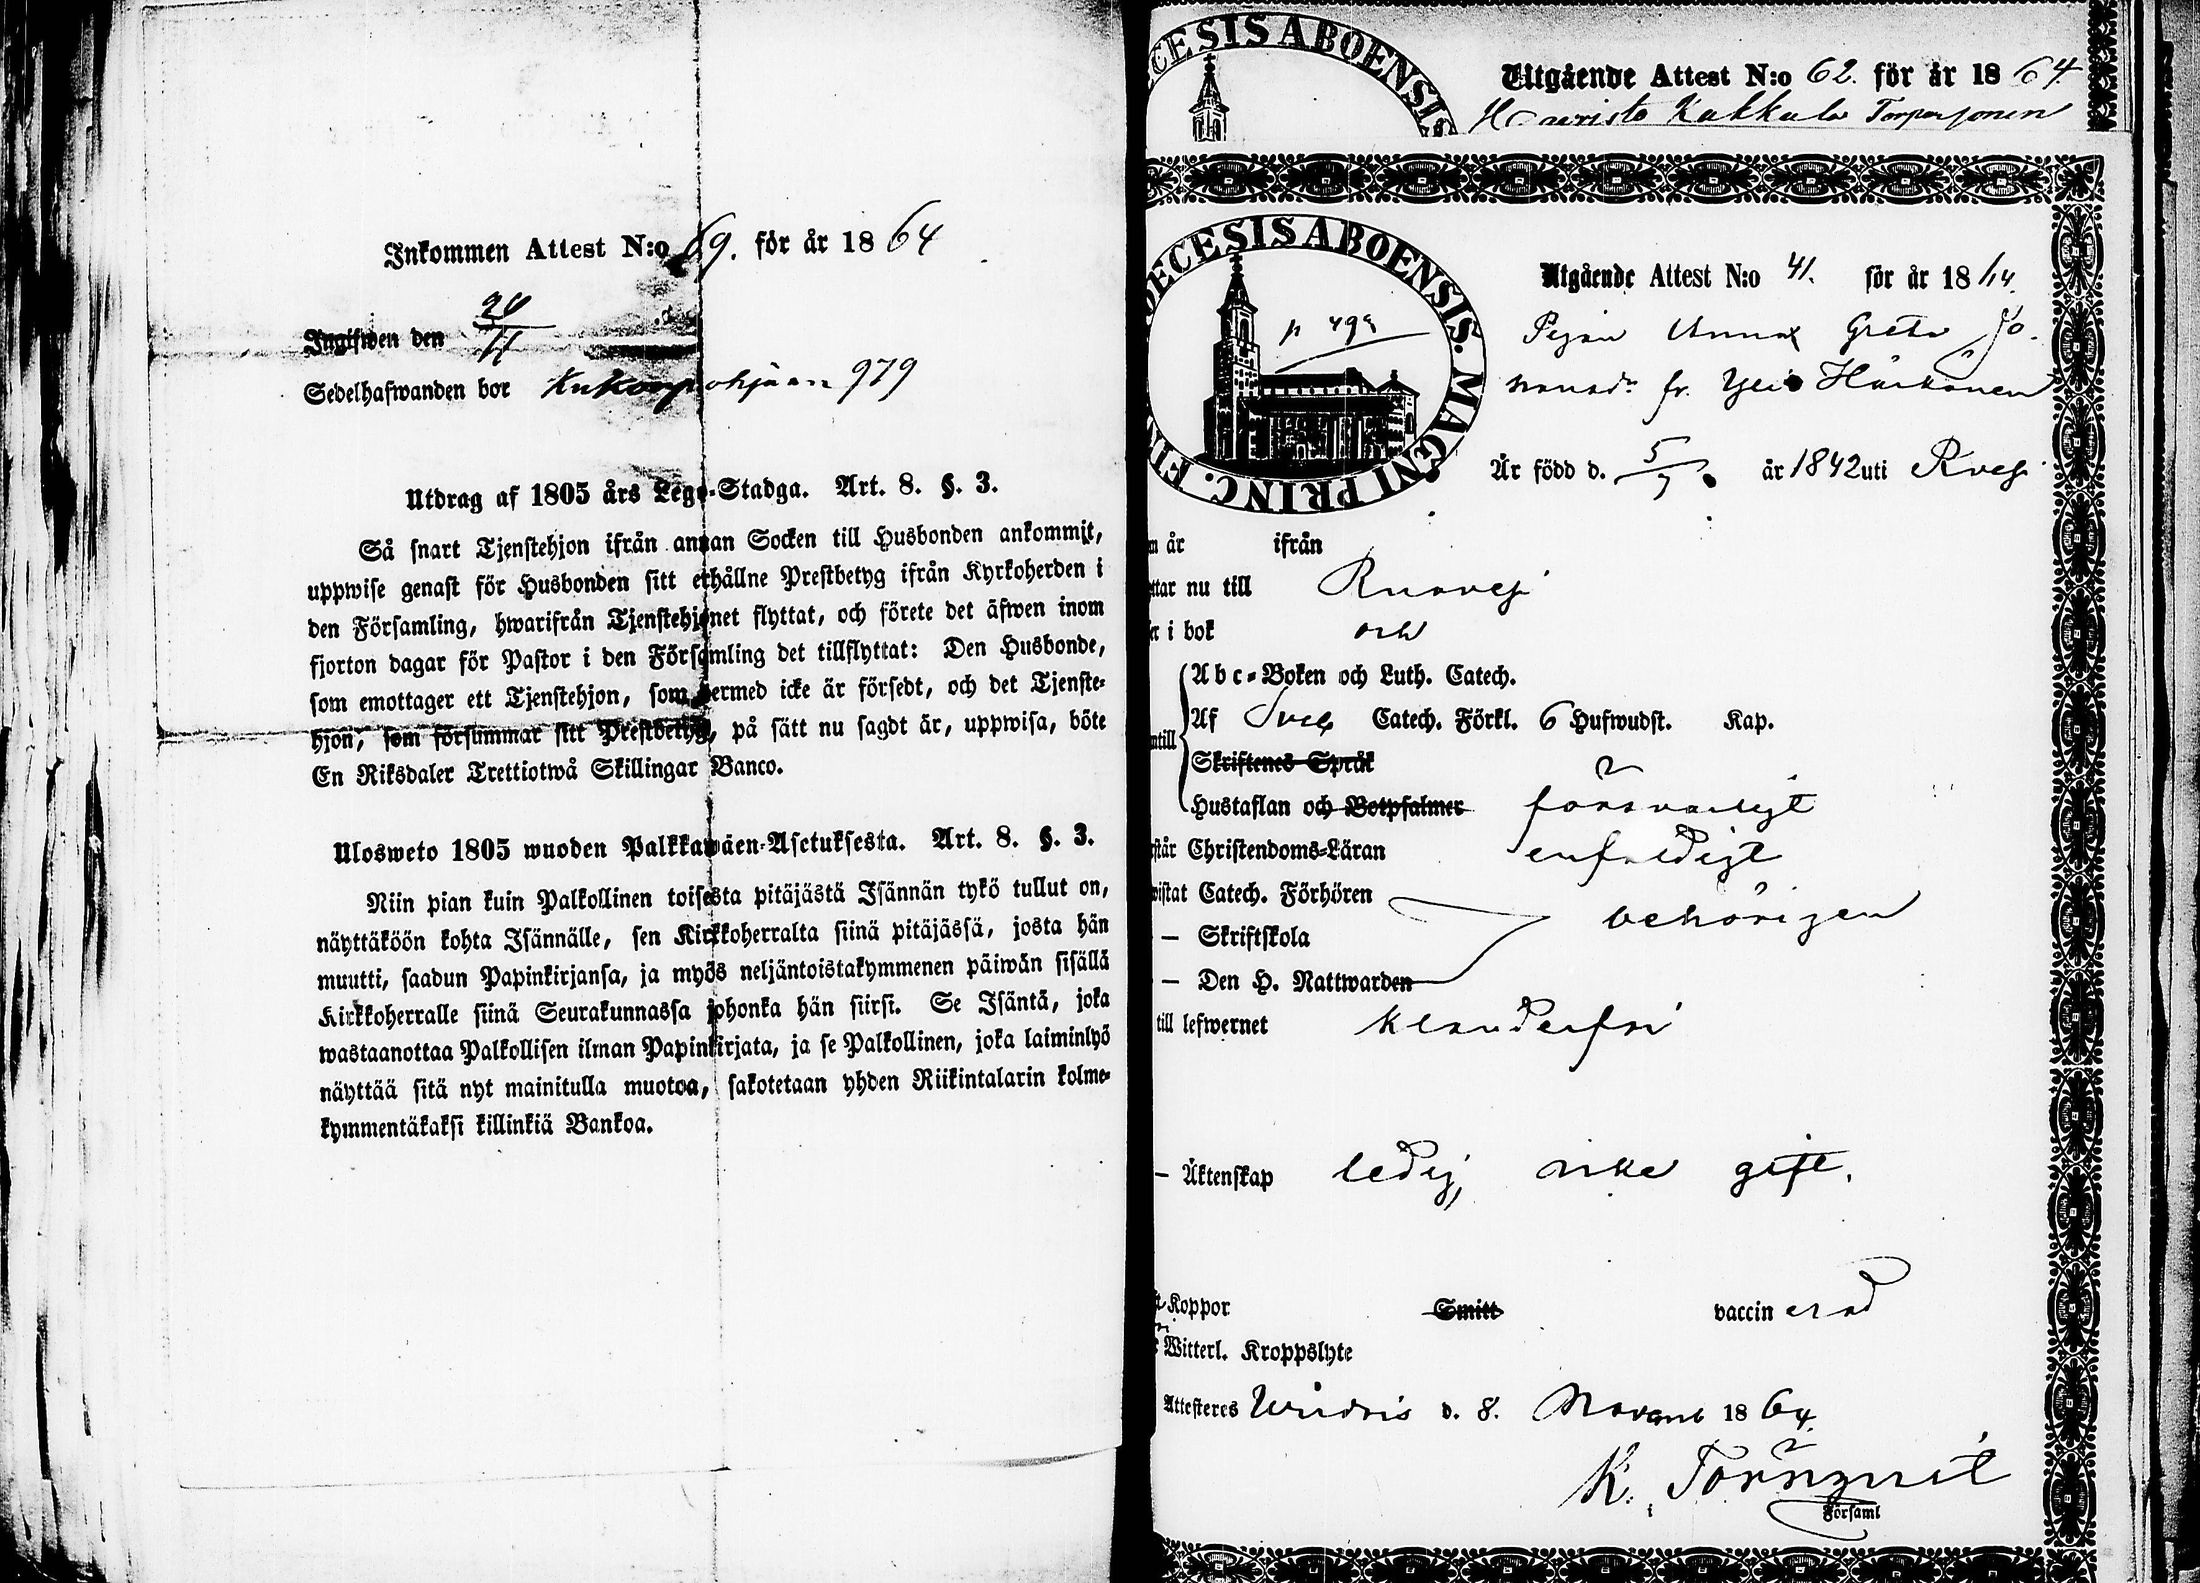 Inkommen Attest N:o 69. för år 1864
Ingifwen den 20/11
Sedelhafwanden bor 979
Utdrag af 1805 års Lego-Stadga. Art. 8. §. 3.
Så snart Tjenstehjon ifrån annan Socken till Husbonden ankommit,
uppwise genast för Husbonden sitt erhållne Prestbetyg ifrån Kyrkoherden i
den Församling, hwarifrån Tjenstehjonet flyttat, och förete det äfwen inom
fjorton dagar för Pastor i den Församling det tillflyttat: Den Husbonde,
som emottager ett Tjenstehjon, som hermed icke är försedt, och det Tjenste-
hjon, som försummar sitt Prestbetyg, på sätt nu sagdt är, uppwisa, böte
En Riksdaler Trettiotwå Skillingar Banco.
Ulosweto 1805 wuoden Palkkawäen-Asetuksesta. Art. 8. §. 3.
Niin pian kuin Palkollinen toisesta pitäjästä Isännän tykö tullut on,
näyttäköön kohta Isännälle, sen Kirkkoherralta siinä pitäjässä, josta hän
muutti, saadun Papinkirjansa, ja myös neljäntoistakymmenen päiwän sisällä
Kirkkoherralle siinä Seurakunnassa johonka hän siirsi. Se Isäntä, joka
wastaanottaa Palkollisen ilman Papinkirjata, ja se Palkollinen, joka laiminlyö
näyttää sitä nyt mainitulla muotoa, sakotetaan yhden Riikintalarin kolme-
kymmentäkaksi killinkiä Bankoa.
ECESIS ABOENSIS
Utgående Attest N:o 62. för år 1864
Kakkula
DECESIS ABOENSIS. MAGNI PRINC. FIN
Utgående Attest N:o 41. för år 1864.
Pigan Anna Greta Jo-
hansdr fr. Yli Härkönen
Är född d. 5/7 år 1842 uti
m år ifrån
ttar nu till Ruovesi
er i bok och
Abc-Boken och Luth. Catech.
Af Sveb Catech. Förkl. 6 Hufwudst. Kap.
ntill
Skriftenes Språk
Hustaflan och Botpsalmer försvarligt
rstår Christendoms-Läran enfaldigt
wistat Catech. Förhören behörigen
— Skriftskola
— Den H. Nattwarden
till lefwernet klanderfri
— Äktenskap ledig, icke gift.
Koppor Smitt vaccinerad
Witterl. Kroppslyte
Attesteres Wirdois d. 8. Novemb 1864.
K. Törnqvist
Församl